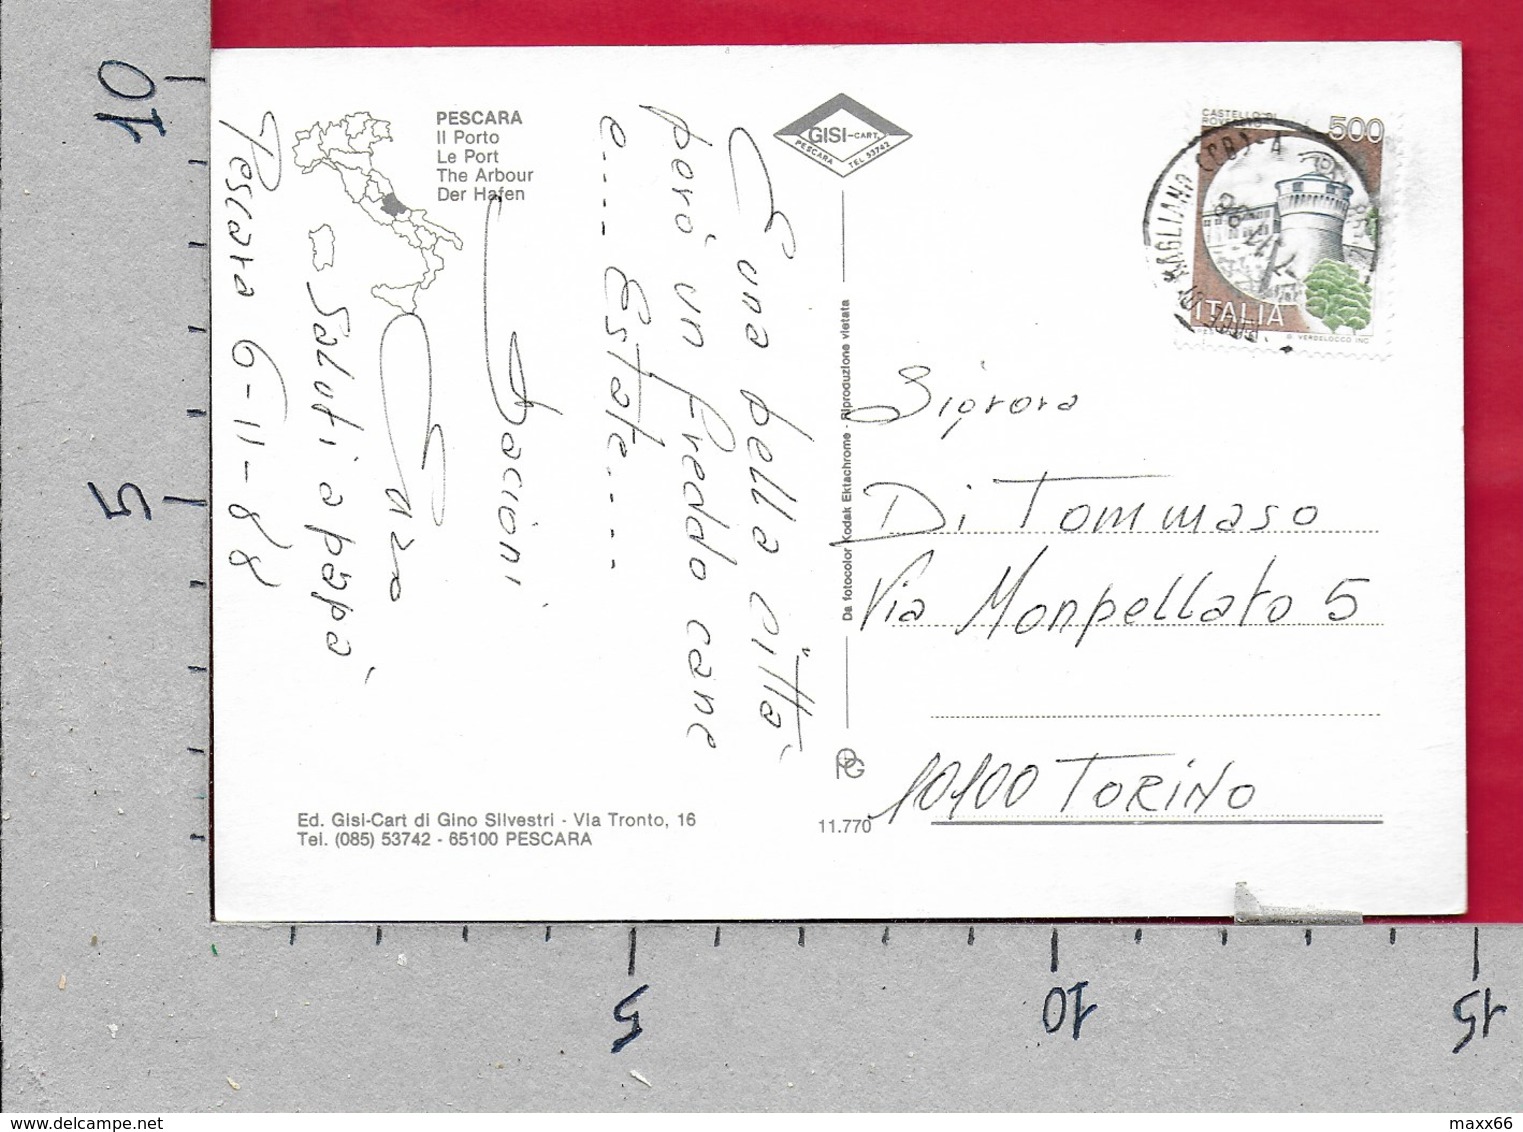 PESCARA
Il Porto
Le Port
The Arbour
Der Hafen
GISI-CART
PESCARA TEL. 53742
CASTELLO DI
ROVERETO
500
ITALIA
MAGLIANO
E una bella città
però un freddo cane
e.... Estate.....
Bacioni
Enzo
Saluti a papà
Pescara 6-11-88
Da fotocolor Kodak Ektachrome - Riproduzione vietata
Signora
Di Tommaso
Via Monpellato 5
10100 TORINO
Ed. Gisi-Cart di Gino Silvestri - Via Tronto, 16
Tel. (085) 53742 - 65100 PESCARA
11.770
10
5
5
10
15
delcampe.net
maxx66